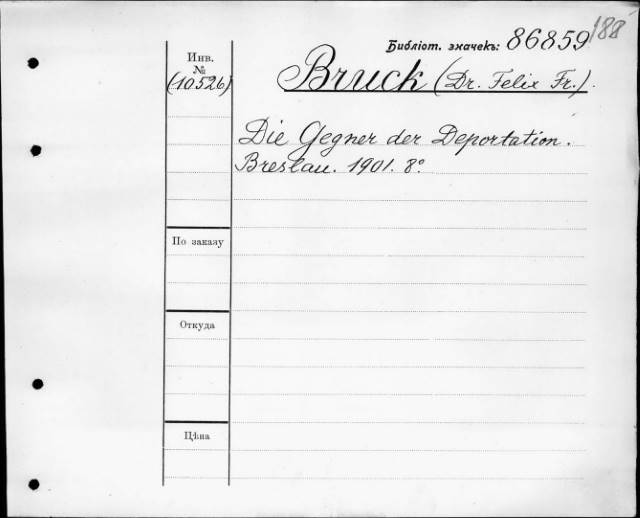 188
Библіот. значекъ: 86859
Инв.
№
(10526)
Bruck (Dr. Felix Fr.).
Die Gegner der Deportation.
Breslau. 1901. 8°.
По заказу
Откуда
Цѣна